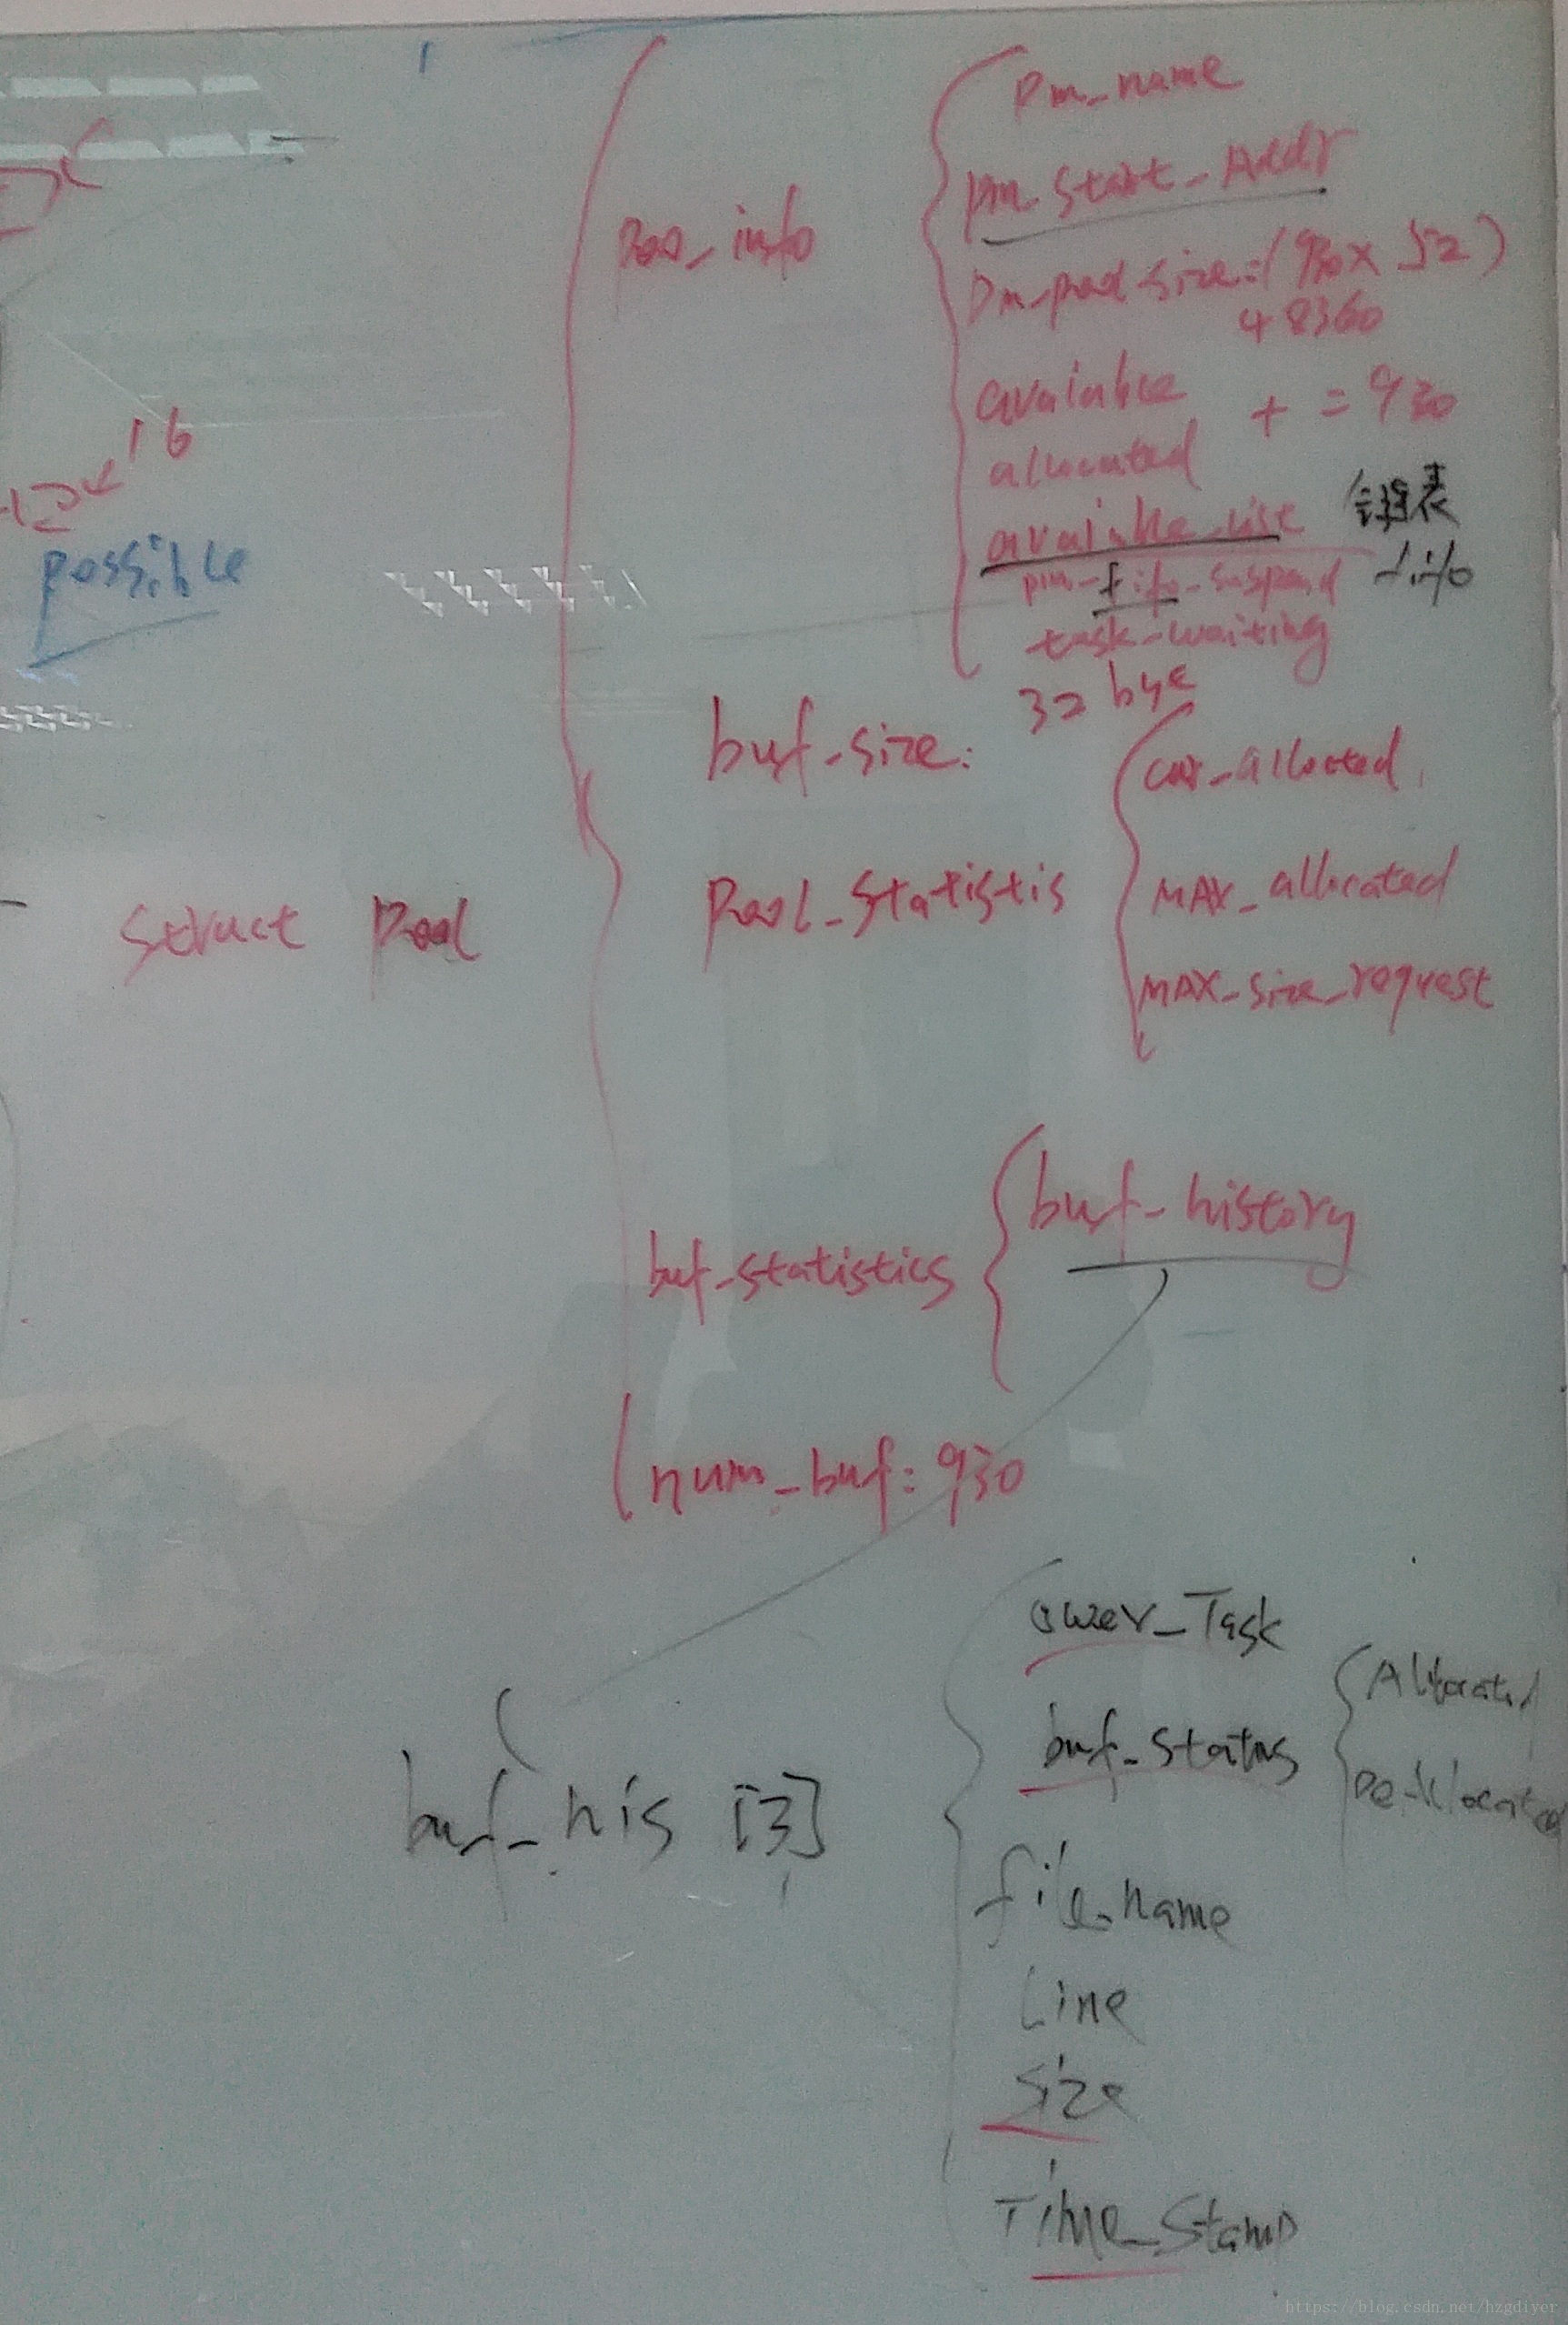 Pm_name
pm_start_Addr
Pool_info
Pm_pool_size=(930x52)
+8360
available
+ =930
allocated
16
available_list 链表
pm_fifo_suspend fifo
possible
task_waiting
32 bye
buf_size:
cur_allocated
MAX_allocated
Pool_statistis
struct Pool
MAX_size_request
buf_history
buf_statistics
num_buf: 930
ower_Task
Allocated
buf_status
De-allocated
buf_his [3]
file_name
Line
Size
Time_Stamp
https://blog.csdn.net/hzgdiyer